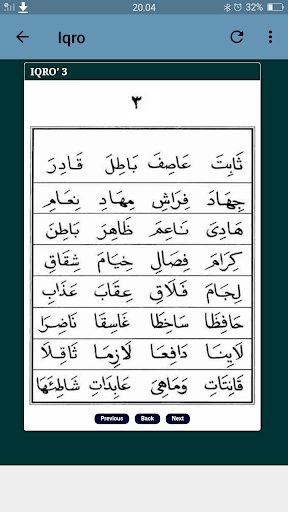 20.04
32%
Iqro
IQRO' 3
٣
ثَابِتَ عَاصِفَ بَاطِلَ قَادِرَ
جِهَادَ فِرَاشِ مِهَادِ نِعَامِ
هَادِىَ نَاعِمَ ظَاهِرَ بَاطِنَ
كِرَامَ فِصَالِ خِيَامَ شِقَاقِ
لِجَامَ فَلَاقِ عِقَابَ عَذَابِ
حَافِظَا سَاخِطَا غَاسِقَا نَاضِرَا
لَايِنَا دَافِعَا لَازِمَا ثَاقِلَا
قَانِتَاتِ وَمَاهِىَ عَابِدَاتِ
Previous Back Next